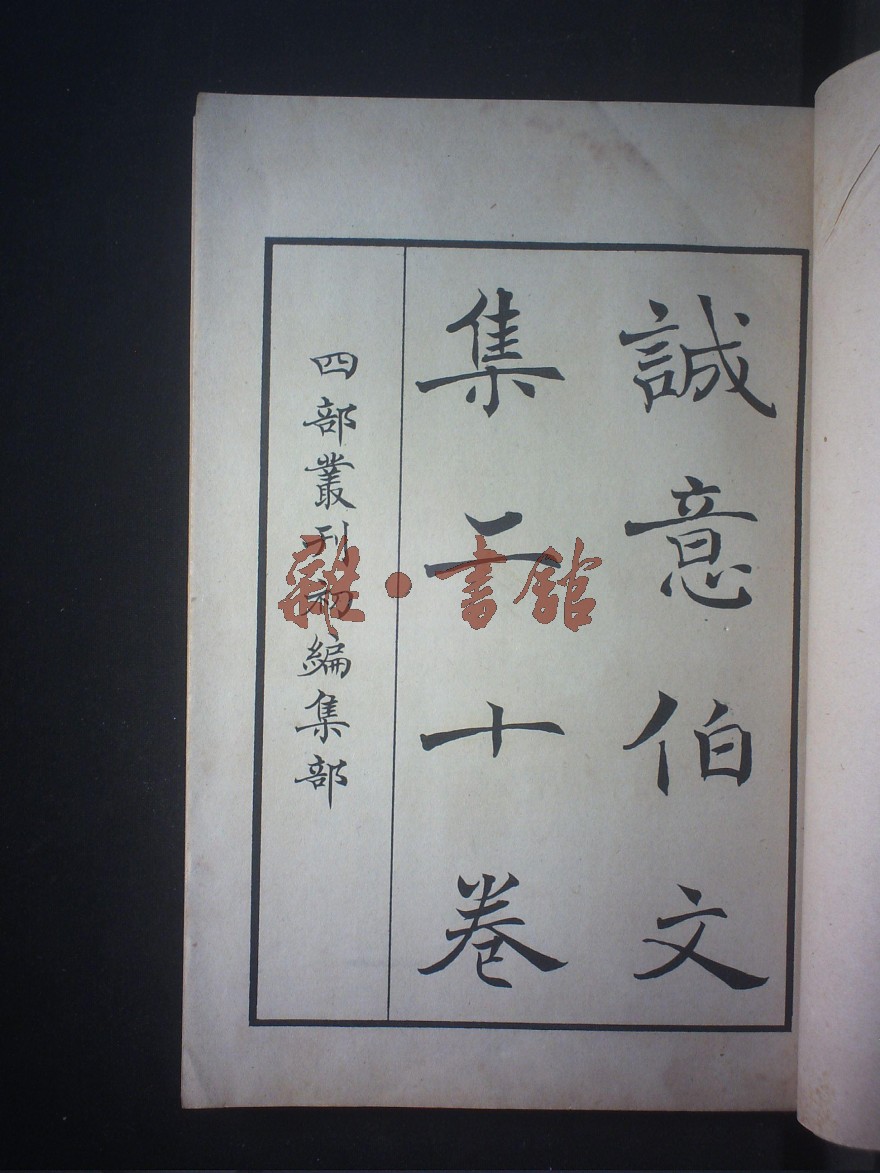 誠意伯文
集二十卷
四部叢刊初編集部
雒•書館